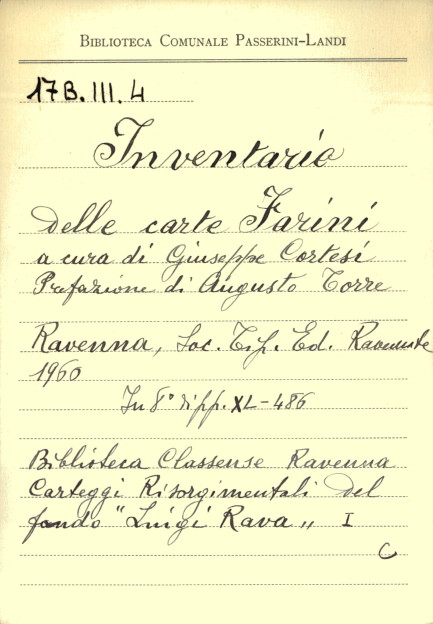 BIBLIOTECA COMUNALE PASSERINI-LANDI
17B.III.4
Inventario
delle carte Farini
a cura di Giuseppe Cortesi
Prefazione di Augusto Torre
Ravenna, Soc. Tip. Ed. Ravennate
1960
In 8° di pp. XL-486
Biblioteca Classense Ravenna
Carteggi Risorgimentali del
fondo "Luigi Rava„ I
C